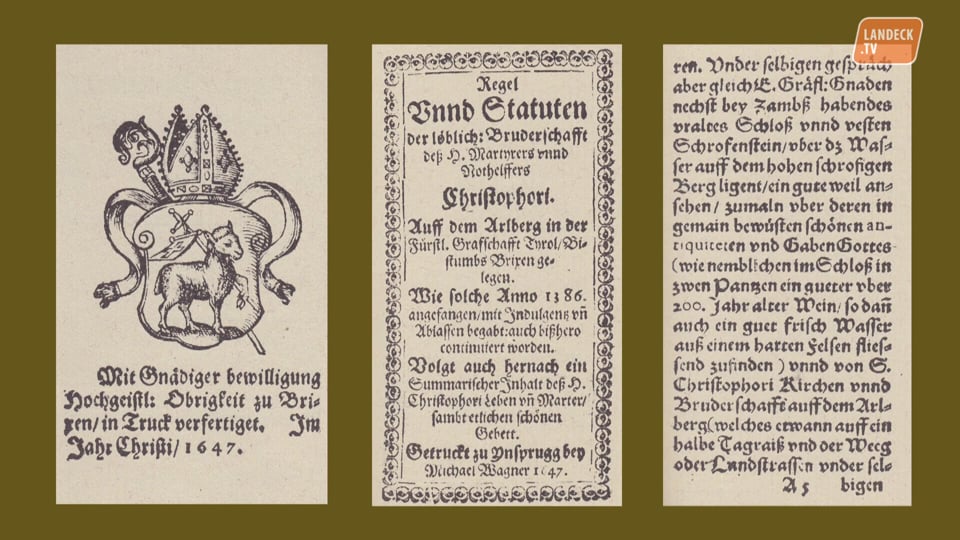 LANDECK
.TV
Mit Gnädiger bewilligung
Hochgeistl: Obrigkeit zu Bri-
xen/ in Truck verfertiget. Im
Jahr Christi/ 1647.
Regel
Vnnd Statuten
der löblich: Bruderschafft
deß H. Martyrers vnnd
Nothelffers
Christophori.
Auff dem Arlberg in der
Fürstl. Graffschafft Tyrol/ Bi-
stumbs Brixen ge-
legen.
Wie solche Anno 1386.
angefangen/ mit Indulgentz vñ
Ablassen begabt: auch bißhero
continuiert worden.
Volgt auch hernach ein
Summarischer Inhalt deß H.
Christophori Leben vñ Marter/
sambt etlichen schönen
Gebett.
Getruckt zu Ynsprugg bey
Michael Wagner 1647.
ren. Vnder selbigen gespräch
aber gleich E. Gräfl: Gnaden
nechst bey Zambß habendes
vraltes Schloß vnnd vesten
Schrofenstein/ vber dz Was-
ser auff dem hohen schrofigen
Berg ligent/ ein gute weil an-
sehen/ zumaln vber deren in
gemain bewüsten schönen an-
tiquiteten vnd Gaben Gottes
(wie nemblichen im Schloß in
zwen Pantzen ein gueter vber
200. Jahr alter Wein/ so dañ
auch ein guet frisch Wasser
auß einem harten Felsen flies-
send zufinden) vnnd von S.
Christophori Kirchen vnnd
Bruderschafft auff dem Arl-
berg (welches etwann auff ein
halbe Tagraiß vnd der Weeg
oder Landstrassen vnder sel-
A 5 bigen